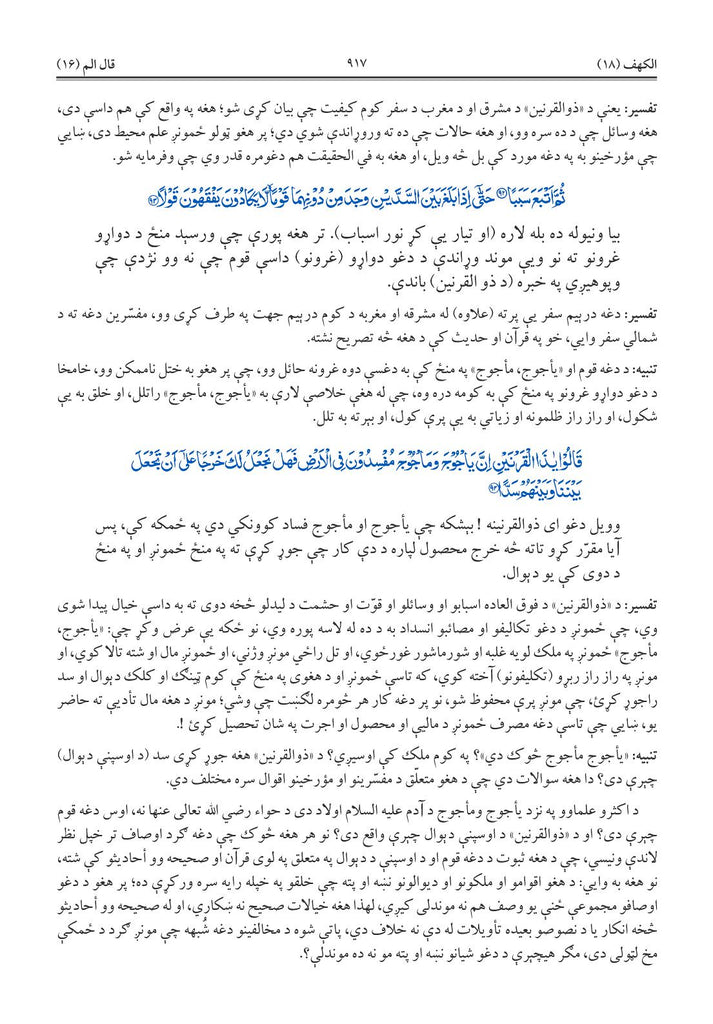 الكهف (۱۸)
۹۱۷
قال الم (۱۶)
تفسير: يعني د «ذوالقرنين» د مشرق او د مغرب د سفر كوم كيفيت چې بيان كړى شو؛ هغه په واقع كې هم داسې دى،
هغه وسائل چې د ده سره وو، او هغه حالات چې ده ته وروړاندې شوي دي؛ پر هغو ټولو ځمونږ علم محيط دى، ښايي
چې مؤرخينو به په دغه مورد كې بل څه ويل، او هغه به في الحقيقت هم دغومره قدر وي چې وفرمايه شو.
ثُمَّ اَتْبَعَ سَبَبًا۹۲ حَتّٰۤى اِذَا بَلَغَ بَيْنَ السَّدَّيْنِ وَجَدَ مِنْ دُوْنِهِمَا قَوْمًا لَّا يَكَادُوْنَ يَفْقَهُوْنَ قَوْلًا۹۳
بيا ونيوله ده بله لاره (او تيار يې كړ نور اسباب). تر هغه پورې چې ورسېد منځ د دواړو
غرونو ته نو ويې موند وړاندې د دغو دواړو (غرونو) داسې قوم چې نه وو نژدې چې
وپوهيږي په خبره (د ذو القرنين) باندې.
تفسير: دغه درېيم سفر يې پرته (علاوه) له مشرقه او مغربه د كوم درېيم جهت په طرف كړى وو، مفسّرين دغه ته د
شمالي سفر وايي، خو په قرآن او حديث كې د هغه څه تصريح نشته.
تنبيه: د دغه قوم او «يأجوج، مأجوج» په منځ كې به دغسې دوه غرونه حائل وو، چې پر هغو به ختل ناممكن وو، خامخا
د دغو دواړو غرونو په منځ كې به كومه دره وه، چې له هغې خلاصې لارې به «يأجوج، مأجوج» راتلل، او خلق به يې
شكول، او راز راز ظلمونه او زياتي به يې پرې كول، او بېرته به تلل.
قَالُوْا يٰذَا الْقَرْنَيْنِ اِنَّ يَاْجُوْجَ وَمَاْجُوْجَ مُفْسِدُوْنَ فِى الْاَرْضِ فَهَلْ نَجْعَلُ لَكَ خَرْجًا عَلٰۤى اَنْ تَجْعَلَ
بَيْنَنَا وَبَيْنَهُمْ سَدًّا۹۴
وويل دغو اى ذوالقرنينه ! بېشكه چې يأجوج او مأجوج فساد كوونكي دي په ځمكه كې، پس
آيا مقرّر كړو تاته څه خرج محصول لپاره د دې كار چې جوړ كړې ته په منځ ځمونږ او په منځ
د دوى كې يو دېوال.
تفسير: د «ذوالقرنين» د فوق العاده اسبابو او وسائلو او قوّت او حشمت د ليدلو څخه دوى ته به داسې خيال پيدا شوى
وي، چې ځمونږ د دغو تكاليفو او مصائبو انسداد به د ده له لاسه پوره وي، نو ځكه يې عرض وكړ چې: «يأجوج،
مأجوج» ځمونږ په ملك لويه غلبه او شورماشور غورځوي، او تل راځي مونږ وژني، او ځمونږ مال او شته تالا كوي، او
مونږ په راز راز ربړو (تكليفونو) آخته كوي، كه تاسې ځمونږ او د هغوى په منځ كې كوم ټينګ او كلك دېوال او سد
راجوړ كړئ، چې مونږ پرې محفوظ شو، نو پر دغه كار هر څومره لګښت چې وشي؛ مونږ د هغه مال تأديې ته حاضر
يو، ښايي چې تاسې دغه مصرف ځمونږ د ماليې او محصول او اجرت په شان تحصيل كړئ !.
تنبيه: «يأجوج مأجوج څوك دي»؟ په كوم ملك كې اوسيږي؟ د «ذوالقرنين» هغه جوړ كړى سد (د اوسپنې دېوال)
چېرې دى؟ دا هغه سوالات دي چې د هغو متعلّق د مفسّرينو او مؤرخينو اقوال سره مختلف دي.
د اكثرو علماوو په نزد يأجوج ومأجوج د آدم عليه السلام اولاد دى د حواء رضي الله تعالى عنها نه، اوس دغه قوم
چېرې دى؟ او د «ذوالقرنين» د اوسپنې دېوال چېرې واقع دى؟ نو هر هغه څوك چې دغه ګرد اوصاف تر خپل نظر
لاندې ونيسي، چې د هغه ثبوت د دغه قوم او د اوسپنې د دېوال په متعلق په لوى قرآن او صحيحه وو أحاديثو كې شته،
نو هغه به وايي: د هغو اقوامو او ملكونو او ديوالونو نښه او پته چې خلقو په خپله رايه سره وركړې ده؛ پر هغو د دغو
اوصافو مجموعې ځنې يو وصف هم نه موندلى كيږي، لهذا هغه خيالات صحيح نه ښكاري، او له صحيحه وو أحاديثو
څخه انكار يا د نصوصو بعيده تأويلات له دې نه خلاف دي، پاتې شوه د مخالفينو دغه شُبهه چې مونږ ګرد د ځمكې
مخ لټولى دى، مګر هيچېرې د دغو شيانو نښه او پته مو نه ده موندلې؟.